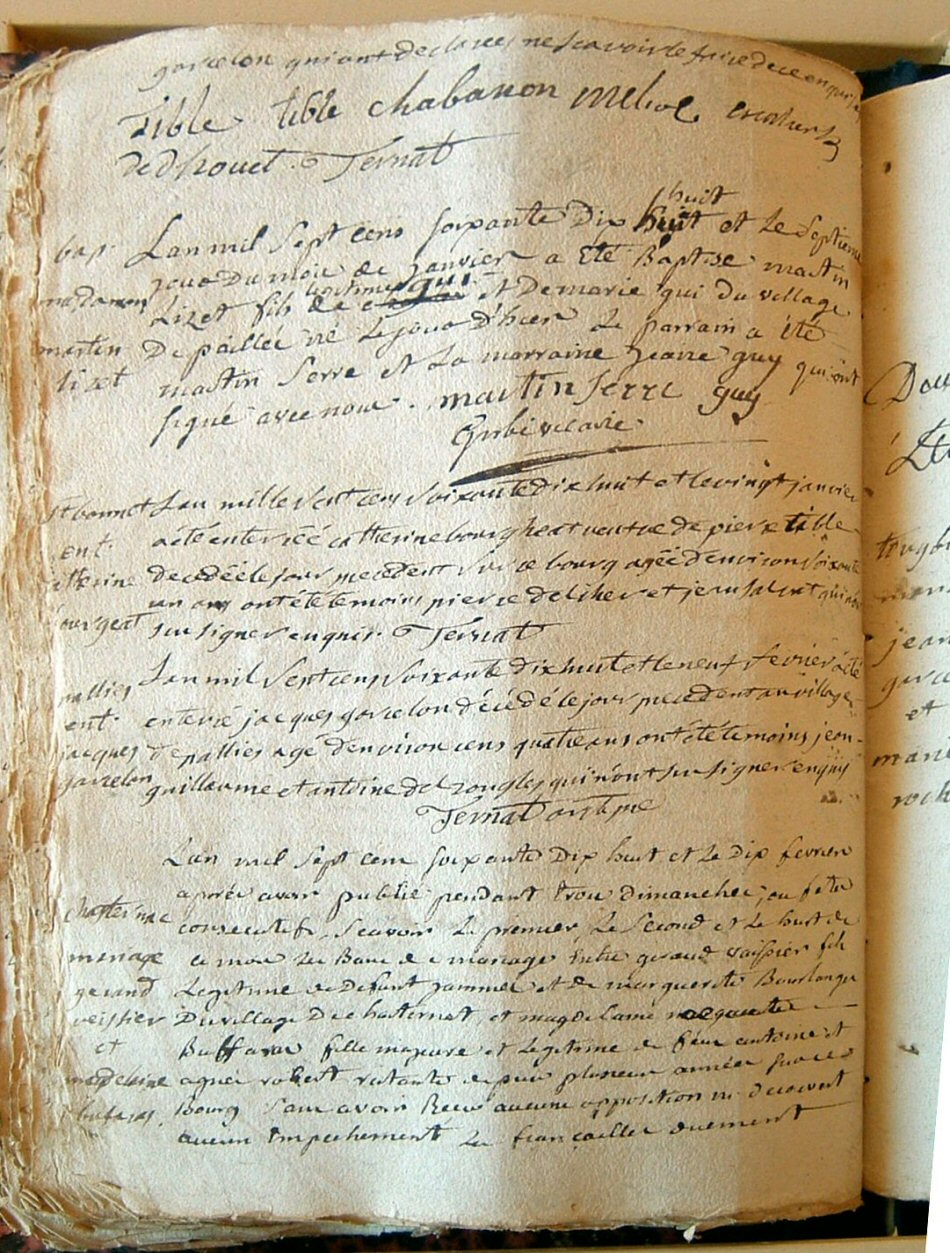 garcelon qui ont declarés ne scavoir le faire de ce enquis
tible tible chabanon
Ternat
bap. Lan mil Sept cens soixante Dix huit huit et Le Septieme
jour Du mois de janvier a Eté Baptise martin
Lizet fils De gui et De marie gui du village
martin De paillée né Le jour D'hier Le parrain a été
lizet martin Serre et La marraine jeanne guy qui ont
signé avec nous. martin serre guy
vicaire
st bonnet Lan mille Sept cens Soixante dix huit et le vingt janvier
ent. a été enterréé catherine bourgheat veuve de pierre tible
catherine decedéé le jour precedent sur ce bourg agéé d'environ soixante
bourgeat un ans ont été temoins pierre deliher et
sçu signer enquis. Ternat
pallies Lan mil Sept cens Soixante dix huit et le neuf fevrier a été
ent. enterré jacques garcelon décédé le jour precedent au village
jacques de pallies agé d'environ cens quatre ans ont été temoins jean
garcelon guillaume et antoine delzongles qui n'ont sçu signer enquis
Ternat
Lan mil Sept cens soixante Dix huit et Le Dix fevrier
aprés avoir publié pendant trois dimanches ou fetes
consecutifs, Scavoir Le premier, Le Second et Le huit de
mariage ce mois Les Bans de mariage Entre geraud vaissier fils
geraud Legitime de Defunt et de marguerite
veissier Du village De chasternat, et magdelaine
et fille majeure et Legitime de feu antoine et
madeleine agnes robert restante depuis plusieurs années sur ce
Bourg Sans avoir Receu aucune opposition ni decouvert
aucun Empechement Les fiancailles
Dou
jean
garce
et
marie